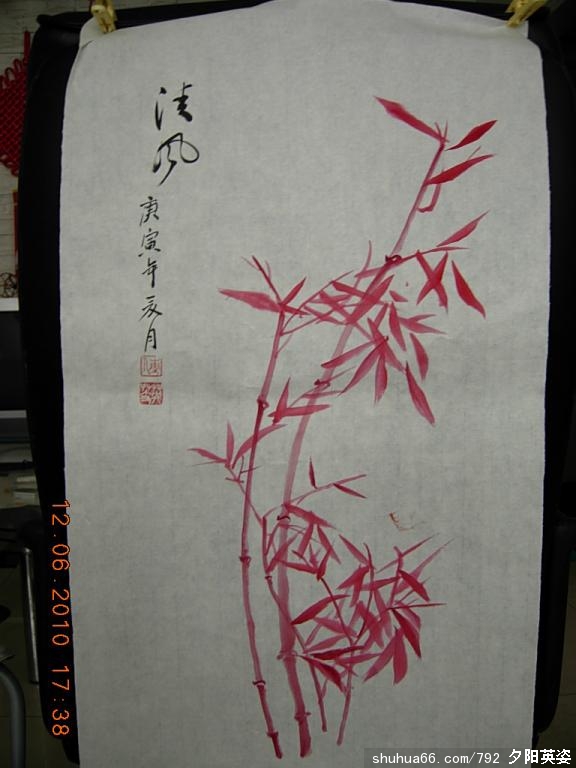 清风
庚寅年亥月
12.06.2010 17:38
shuhua66.com/792 夕阳英姿